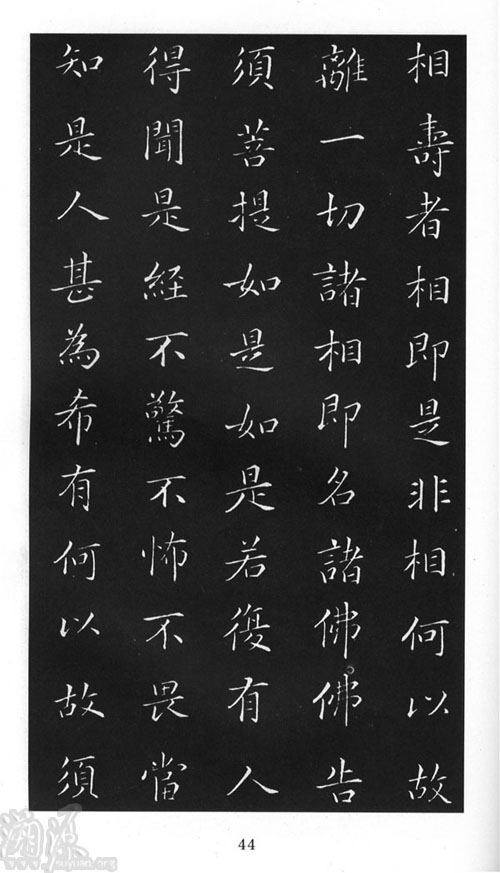 相壽者相即是非相何以故
離一切諸相即名諸佛佛告
須菩提如是如是若復有人
得聞是經不驚不怖不畏當
知是人甚為希有何以故須
44